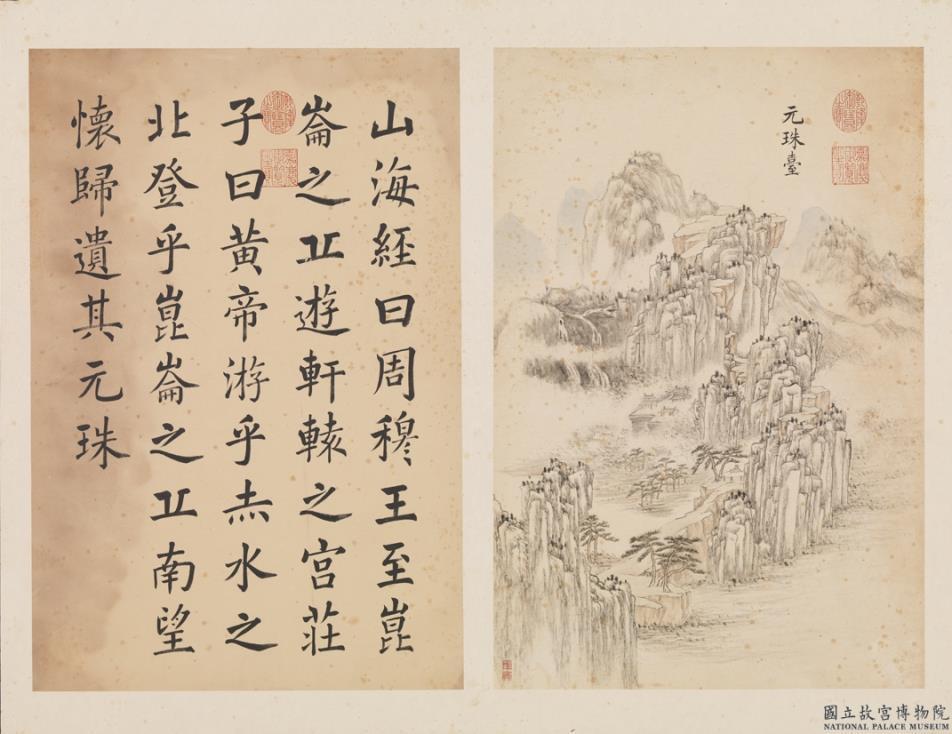 山海經曰周穆王至崑
崙之丘遊軒轅之宮莊
子曰黃帝游乎赤水之
北登乎崑崙之丘南望
懷歸遺其元珠
元珠臺
國立故宮博物院
NATIONAL PALACE MUSEUM